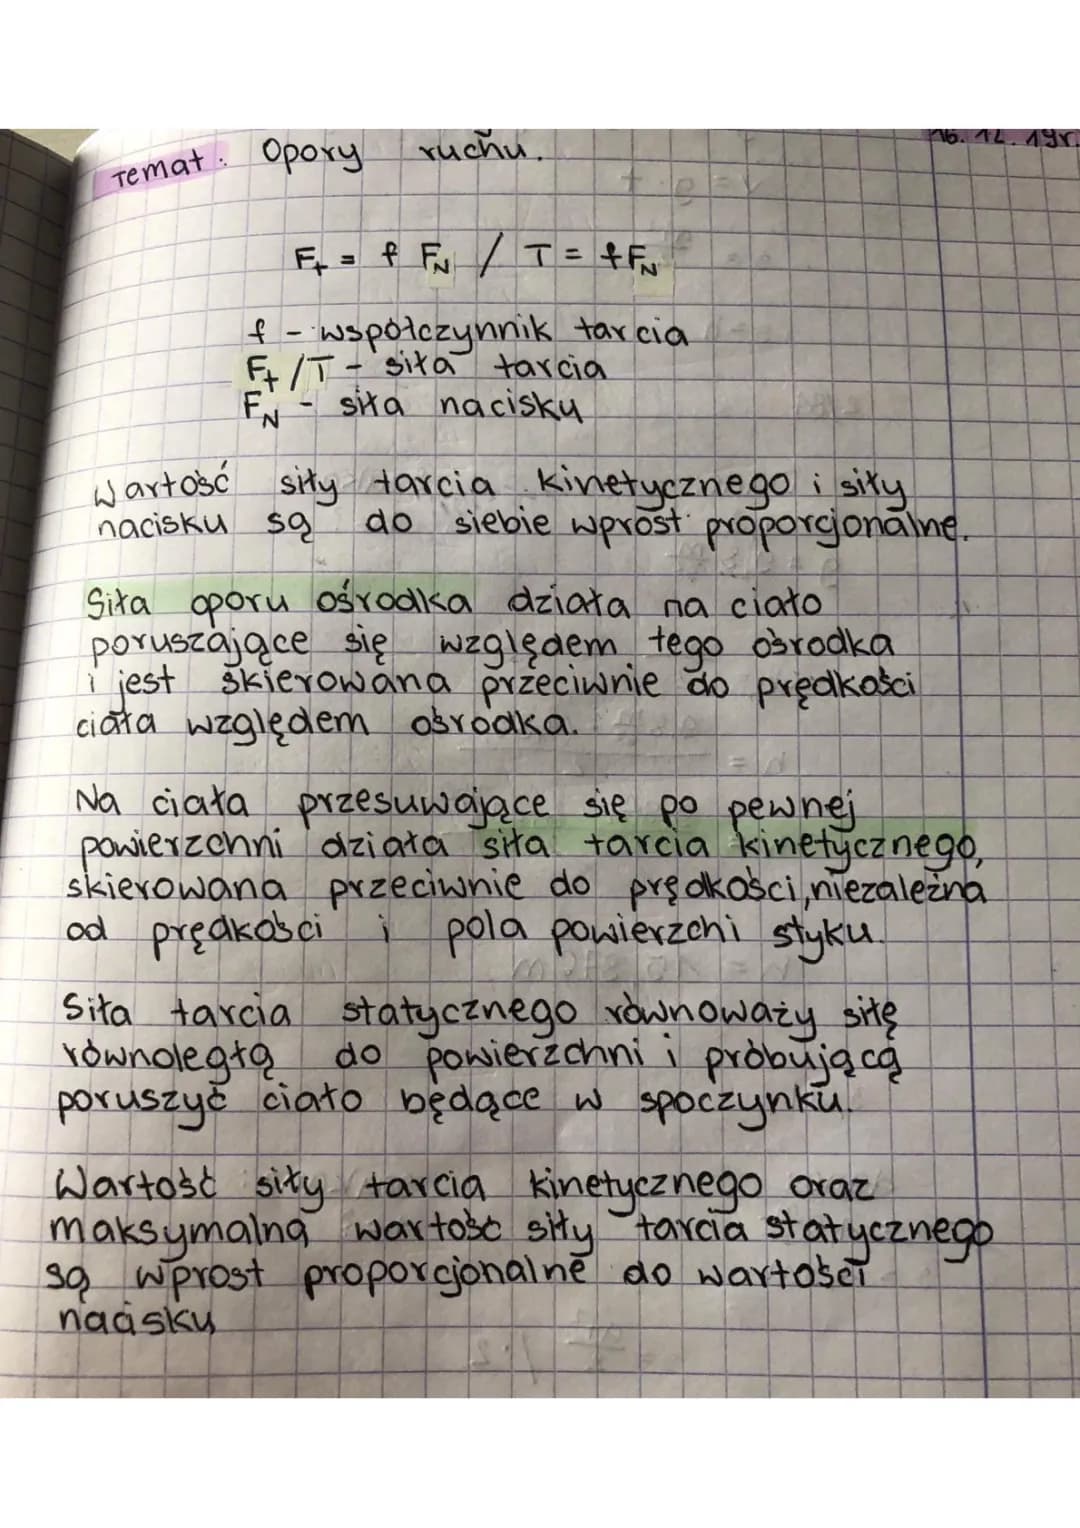 16.12.19r.
Temat: Opory ruchu.
Ft = f FN / T = fFN
f - współczynnik tarcia
Ft/T - siła tarcia
FN - siła nacisku
Wartość siły tarcia kinetycznego i siły
nacisku są do siebie wprost proporcjonalne.
Siła oporu ośrodka działa na ciało
poruszające się względem tego ośrodka
i jest skierowana przeciwnie do prędkości
ciała względem ośrodka.
Na ciała przesuwające się po pewnej
powierzchni działa siła tarcia kinetycznego,
skierowana przeciwnie do prędkości, niezależna
od prędkości i pola powierzchi styku.
Siła tarcia statycznego równoważy siłę
równoległą do powierzchni i próbującą
poruszyć ciało będące w spoczynku.
Wartość siły tarcia kinetycznego oraz
maksymalną wartość siły tarcia statycznego
są wprost proporcjonalne do wartości
nacisku